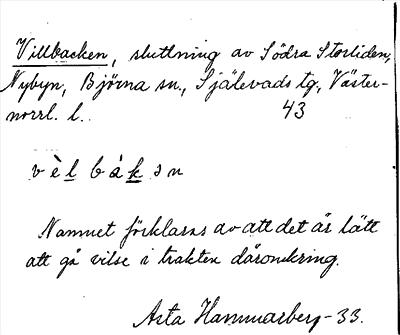 Villbacken, sluttning av Södra Storliden,
Nybyn, Björna sn., Själevads tg., Väster-
norrl. l. 43
v è l b á k s n
Namnet förklaras av att det är lätt
att gå vilse i trakten däromkring.
Asta Hammarberg - 33.